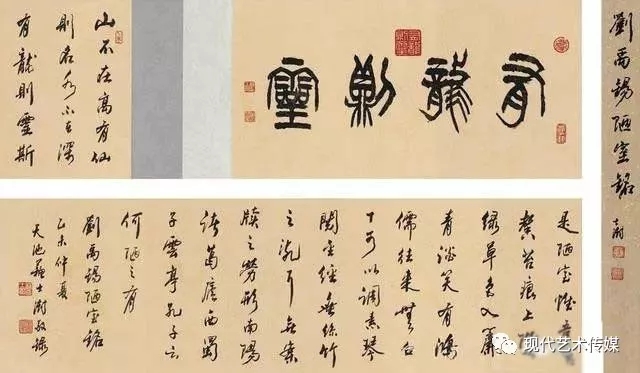 劉禹錫陋室銘
士澍
有龍則靈
山不在高有仙
則名水不在深
有龍則靈斯
是陋室惟吾德
馨苔痕上階
綠草色入簾
青談笑有鴻
儒往來無白
丁可以調素琴
閱金經無絲竹
之亂耳無案
牘之勞形南陽
諸葛廬西蜀
子雲亭孔子云
何陋之有
劉禹錫陋室銘
乙未仲夏
天池蘇士澍敬錄
现代艺术传媒